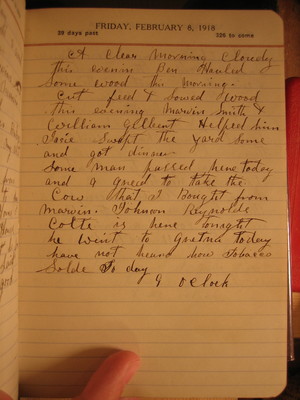 FRIDAY, FEBRUARY 8, 1918
38 days past 326 to come
A Clear Morning Cloudy
this evenin Ben Hauled
some wood this Morning.
Cut feed & Sawed wood
this evening Marvin Smith &
William Gilbert Helped him
Swept the Yard some
and got dinner
Some Man passed here today
and agreed to take the
Cow that I Bought from
Marvin. Johnson Reynolds
Colte is here tonight
he Wint to Gretna today
have not heard how Tobacco
Solde To day
9 OClock